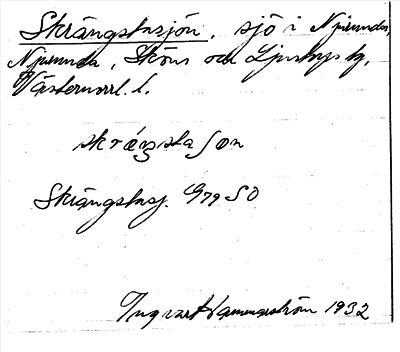 Skrängstasjön, sjö i Njurunda,
Njurunda, Sköns och Ljustorps tg,
Västernorrl. l.
skráŋstaʃøn
Skrängstasj. G79 SO
Ingvar Hammarström 1932